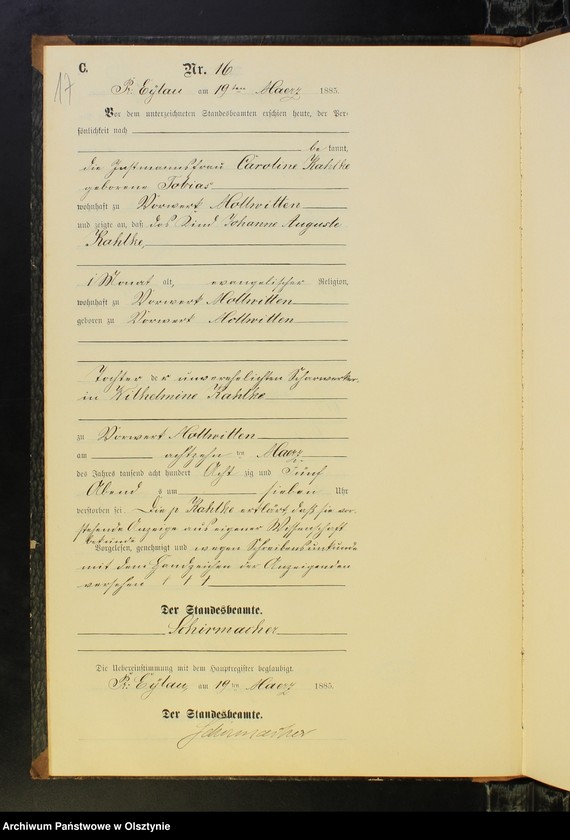 C.
Nr. 16
17
Pr. Eylau am 19ten Maerz 1885.
Vor dem unterzeichneten Standesbeamten erschien heute, der Per-
sönlichkeit nach
be kannt,
die Instmannsfrau Caroline Kahlke
geborene Tobias
wohnhaft zu Vorwerk Mollwitten
und zeigte an, daß das Kind Johanne Auguste
Kahlke,
1 Monat alt, evangelischer Religion,
wohnhaft zu Vorwerk Mollwitten
geboren zu Vorwerk Mollwitten
Tochter der unverehelichten Scharwerker-
in Wilhelmine Kahlke
zu Vorwerk Mollwitten
am achtzehn ten Maerz
des Jahres tausend acht hundert Acht zig und Fünf
Abend s um sieben Uhr
verstorben sei. Die p Kahlke erklärt, daß sie vor-
stehende Anzeige aus eigener Wissenschaft
bekunde
Vorgelesen, genehmigt und wegen Schreibensunkunde
mit dem Handzeichen der Anzeigenden
versehen / / /
Der Standesbeamte.
Schirmacher
Die Uebereinstimmung mit dem Hauptregister beglaubigt.
Pr. Eylau, am 19 ten Maerz 1885.
Der Standesbeamte.
Schirmacher
Archiwum Państwowe w Olsztynie